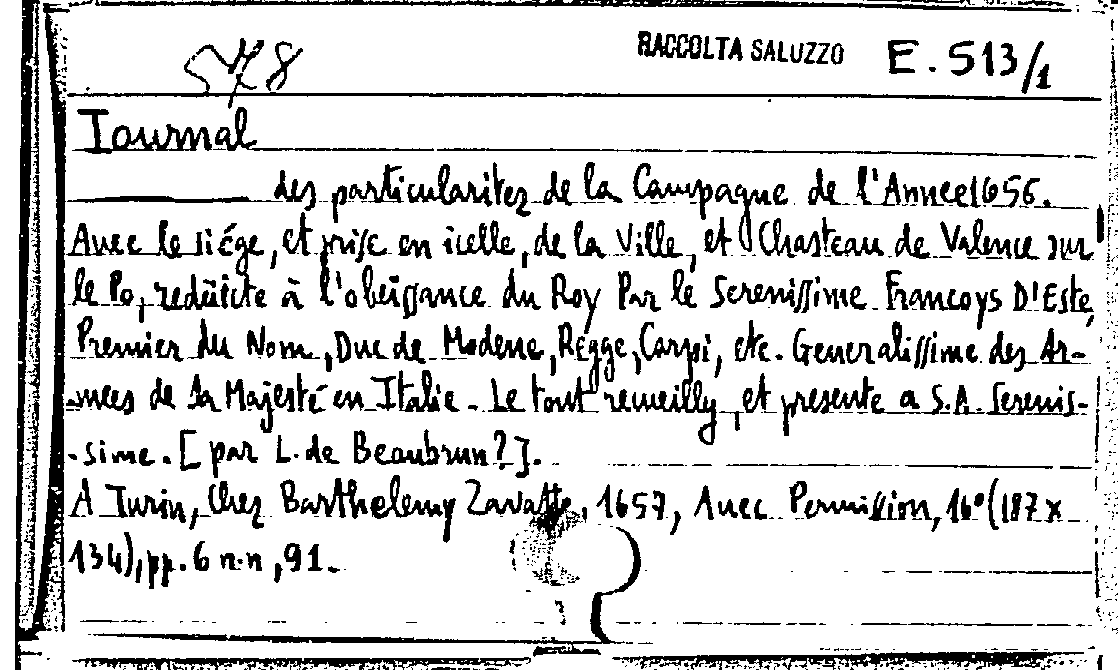 578 RACCOLTA SALUZZO E. 513/1
Iournal
des particularitez de la Campagne de l'Annee 1656.
Avec le siége, et prise en icelle, de la Ville, et Chasteau de Valence sur
le Po, redüicte à l'obeissance du Roy Par le Serenissime Francoys D'Este,
Premier du Nom, Duc de Modene, Regge, Carpi, etc. Generalissime des Ar-
-mees de Sa Majesté en Italie. Le tout recueilly, et presente a S.A. Serenis-
-sime. [par L. de Beaubrun?].
A Turin, Chez Barthelemy Zavatte, 1657, Avec Permission, 16° (187 x
134), pp. 6 n.n, 91.